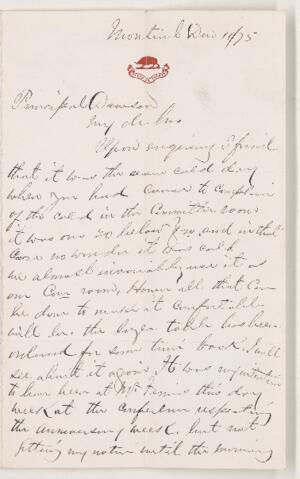 Montreal Dec 10/75
Principal Dawson
My dr Sir
Upon enquiring I find
that it was the same cold day
when you had cause to complain
of the cold in the Committee room
it was over 20 below zero, and in that
case no wonder it was cold
we almost invariably use it as
our Com room, However all that can
be done to make it comfortable
will be. the larger table has been
ordered for some time back. I will
see about it again, It was my intention
to have been at this day
week at the conference respecting
the anniversary week, but not
getting my notice until the morning